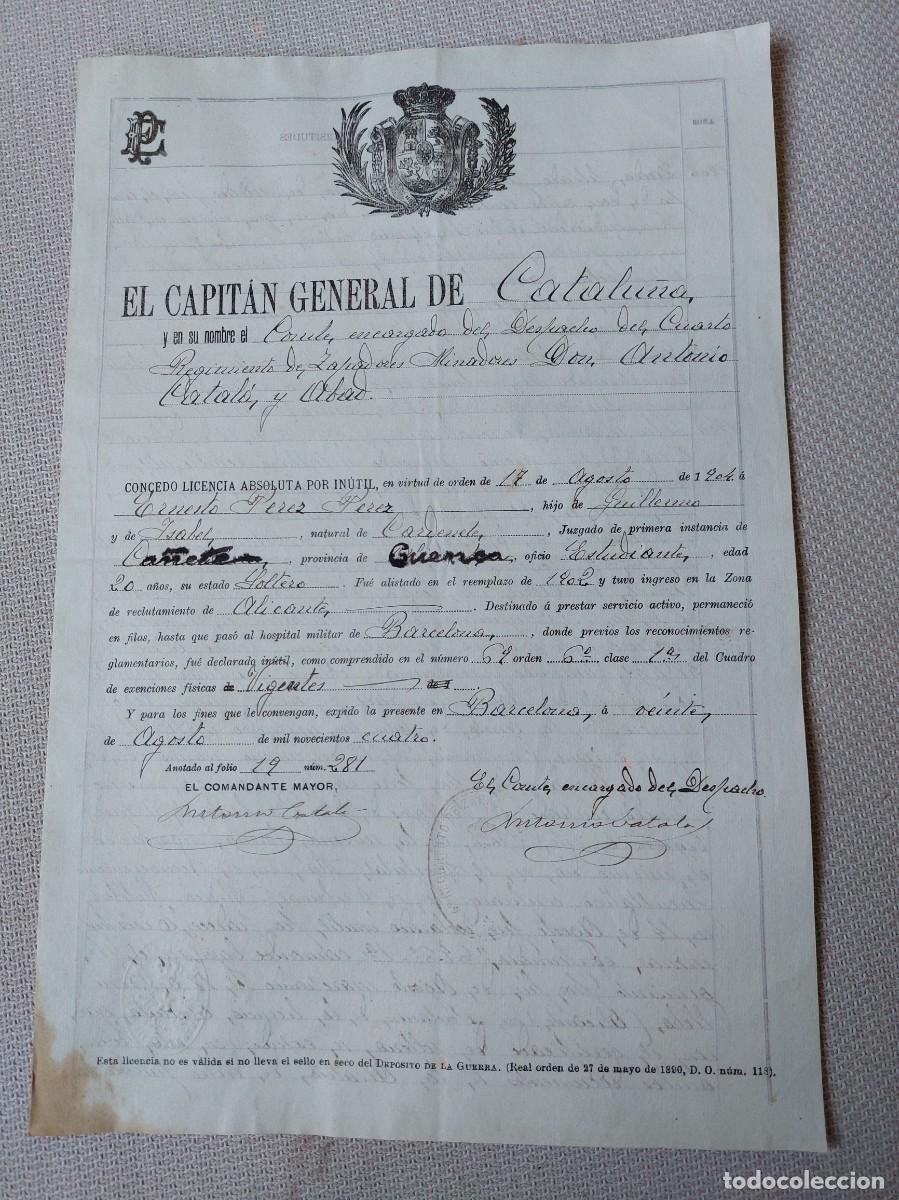 PC
EL CAPITÁN GENERAL DE Cataluña,
y en su nombre el Comte, encargado del Despacho del Cuarto
Regimiento de Zapadores Minadores Don Antonio
Catalá y Abad.
CONCEDO LICENCIA ABSOLUTA POR INÚTIL, en virtud de orden de 17 de Agosto de 1904 á
Ernesto Perez Perez, hijo de Guillermo
y de Isabel, natural de Cardenete, Juzgado de primera instancia de
Cañete, provincia de Cuenca, oficio Estudiante, edad
20 años, su estado Soltero. Fué alistado en el reemplazo de 1902 y tuvo ingreso en la Zona
de reclutamiento de Alicante. Destinado á prestar servicio activo, permaneció
en filas, hasta que pasó al hospital militar de Barcelona, donde previos los reconocimientos re-
glamentarios, fué declarado inútil, como comprendido en el número 67 orden 6º clase 1ª del Cuadro
de exenciones físicas de Vigentes de 1
Y para los fines que le convengan, expido la presente en Barcelona, á veinte,
de Agosto de mil novecientos cuatro.
Anotado al folio 19 núm. 281
EL COMANDANTE MAYOR,
El Comte, encargado del Despacho.
Antonio Catalá
Antonio Catalá
Esta licencia no es válida si no lleva el sello en seco del DEPOSITO DE LA GUERRA. (Real orden de 27 de mayo de 1890, D. O. núm. 118).
todocoleccion